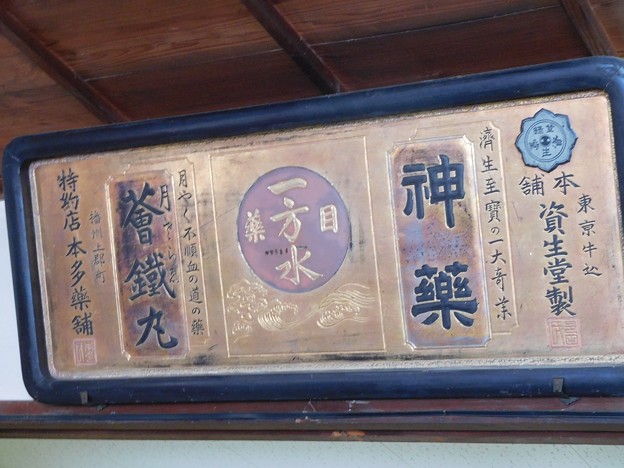 東京牛込
本舗 資生堂製
濟生至寶の一大奇薬
神藥
目藥
一方水
月やく不順血の道の藥
薈鐵丸
播州上郡町
特約店 本多藥舗